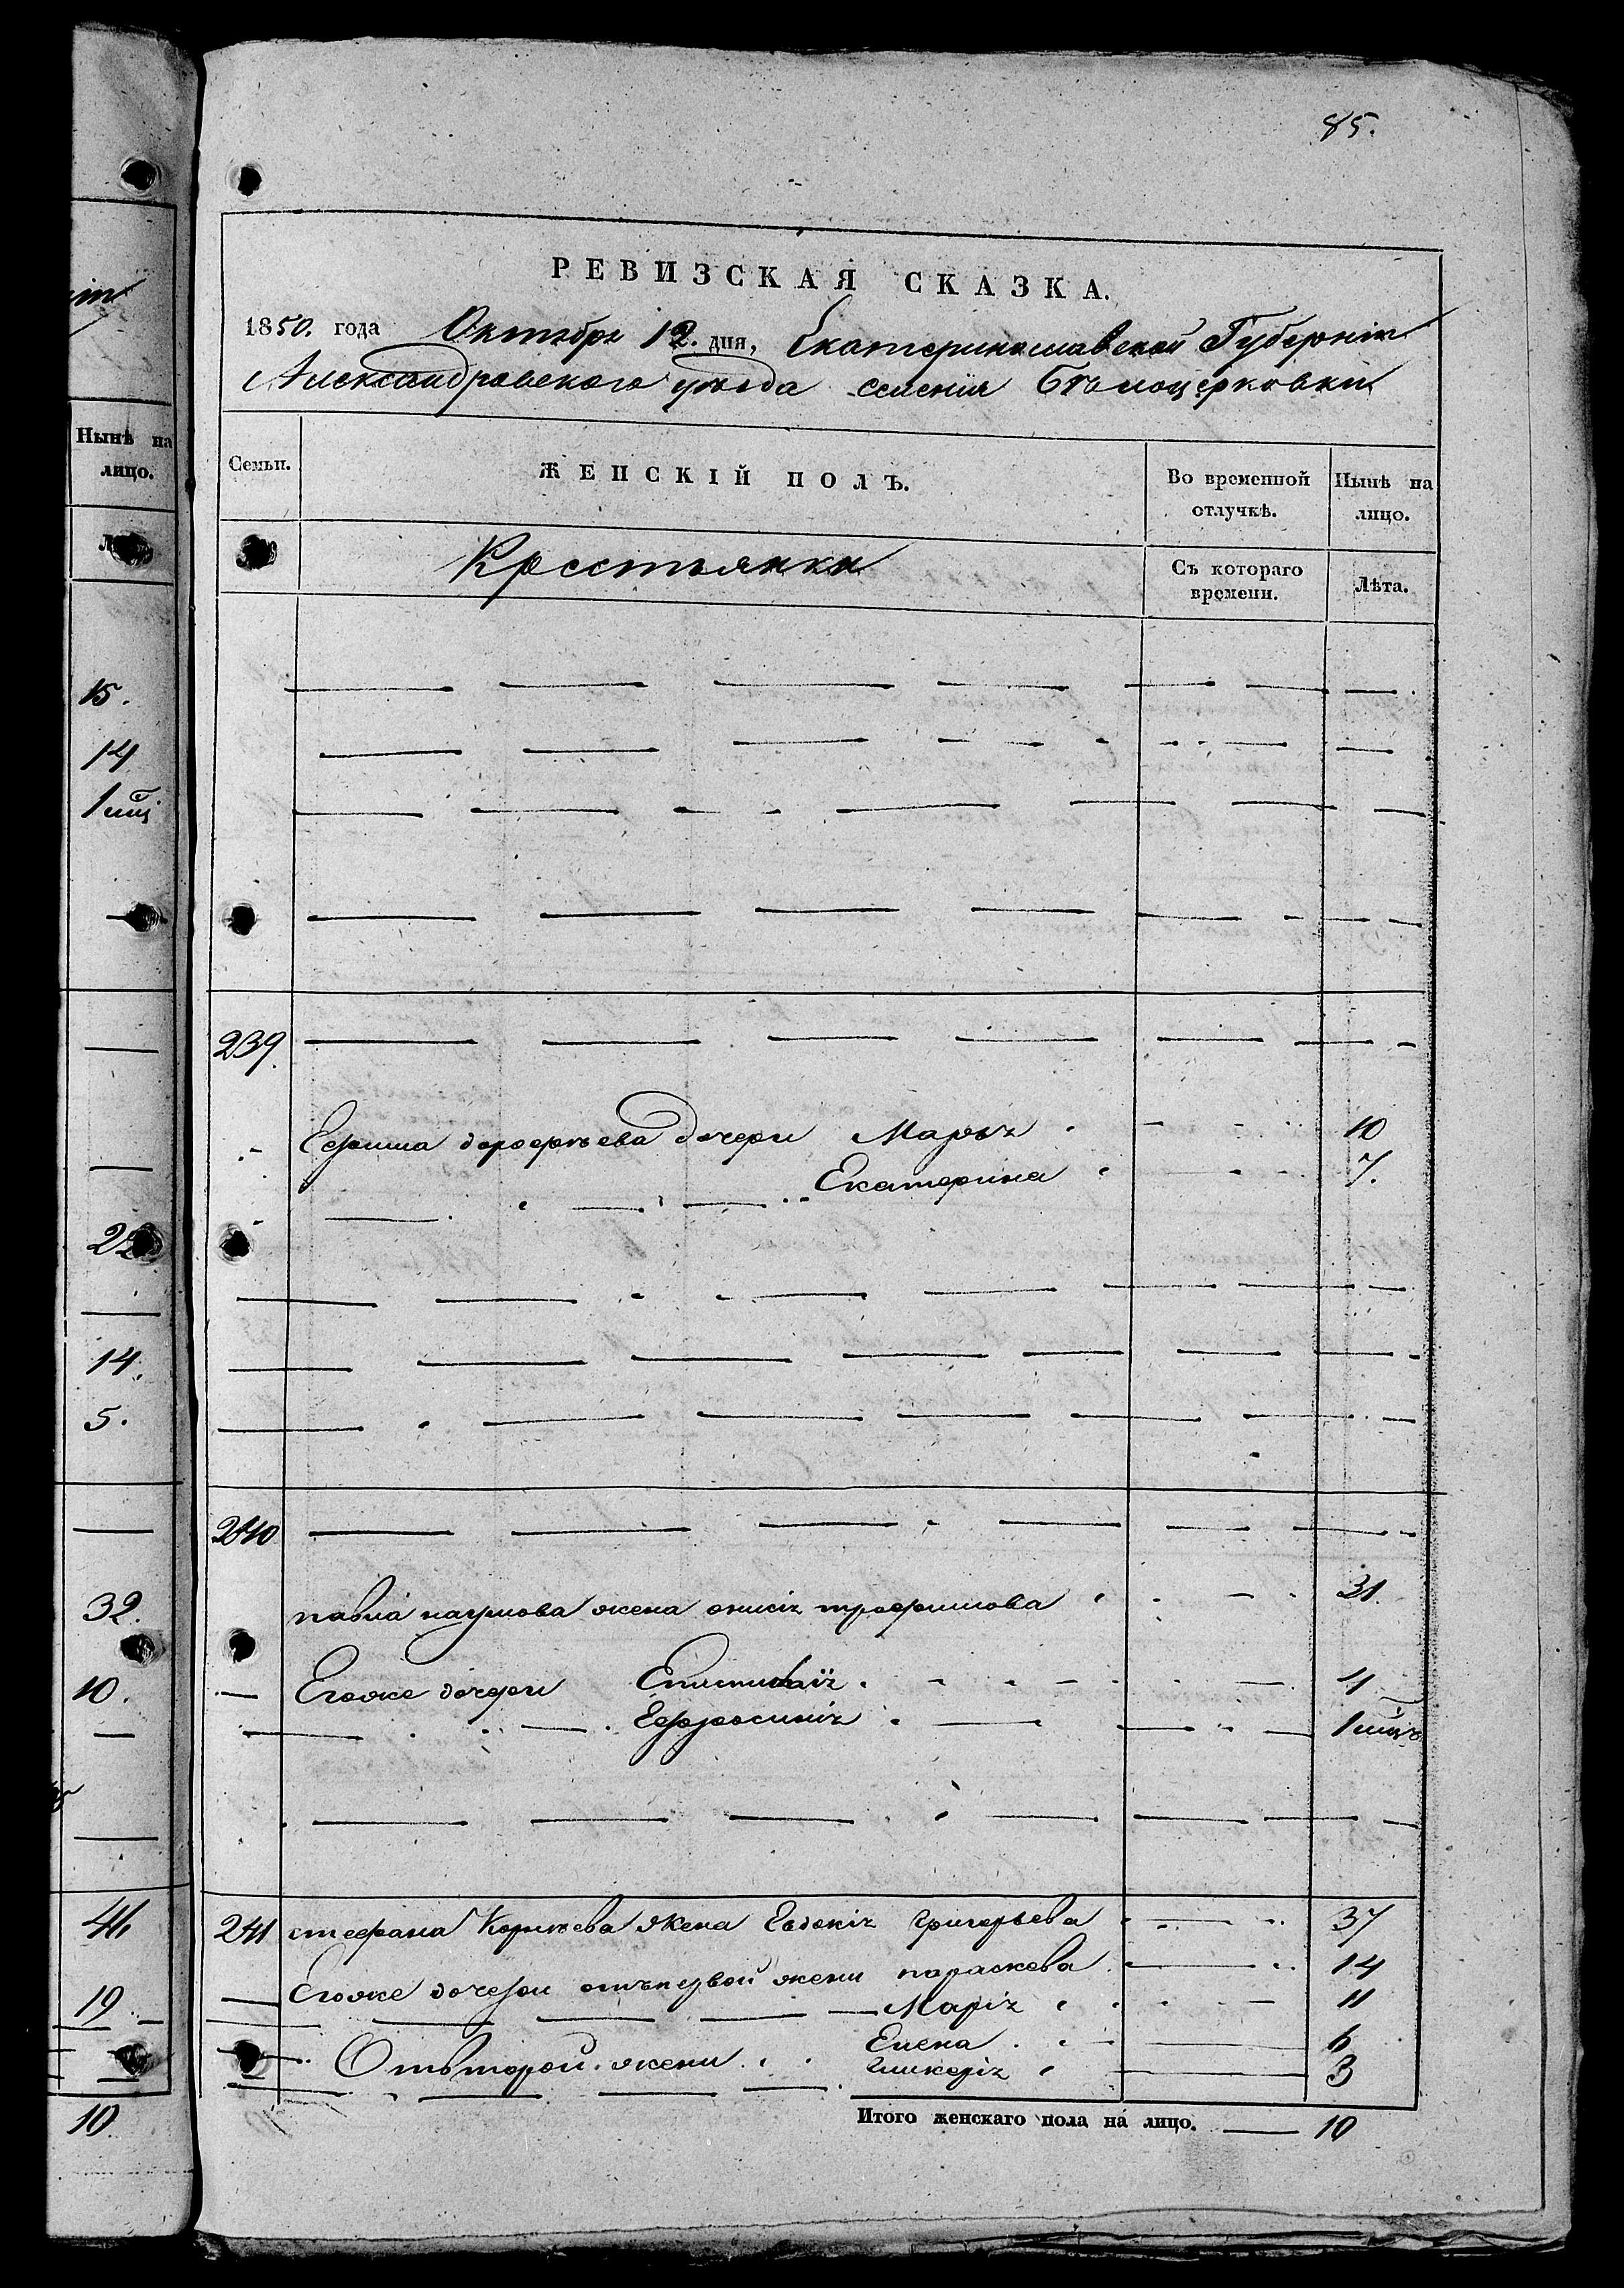 іи
Нынѣ на
лицо.
15.
14
1 мц
22
14.
5.
32.
10.
46
19
10
85.
РЕВИЗСКАЯ СКАЗКА.
1850. года Октября 12. дня, Екатеринославской Губерніи
Александровского уѣзда селенія Бѣлоцерковки
Семьи.
ЖЕНСКІЙ ПОЛЪ.
Во временной отлучкѣ.
Нынѣ на лицо.
Крестьянки
Съ котораго времени.
Лѣта.
239.
Ефима дорофѣева дочери Марья 10
Екатерина 7.
240
павла наумова жена онисія трофимова 31.
Егоже дочери Епистимія 4
Ефросинія 1 мцъ
241 стефана Корнѣева жена Евдокія григорьева 37
Егоже дочери отъпервой жени параскева 14
Марія 11
Отвторой жени Елена 6
гликерія 3
Итого женскаго пола на лицо. 10